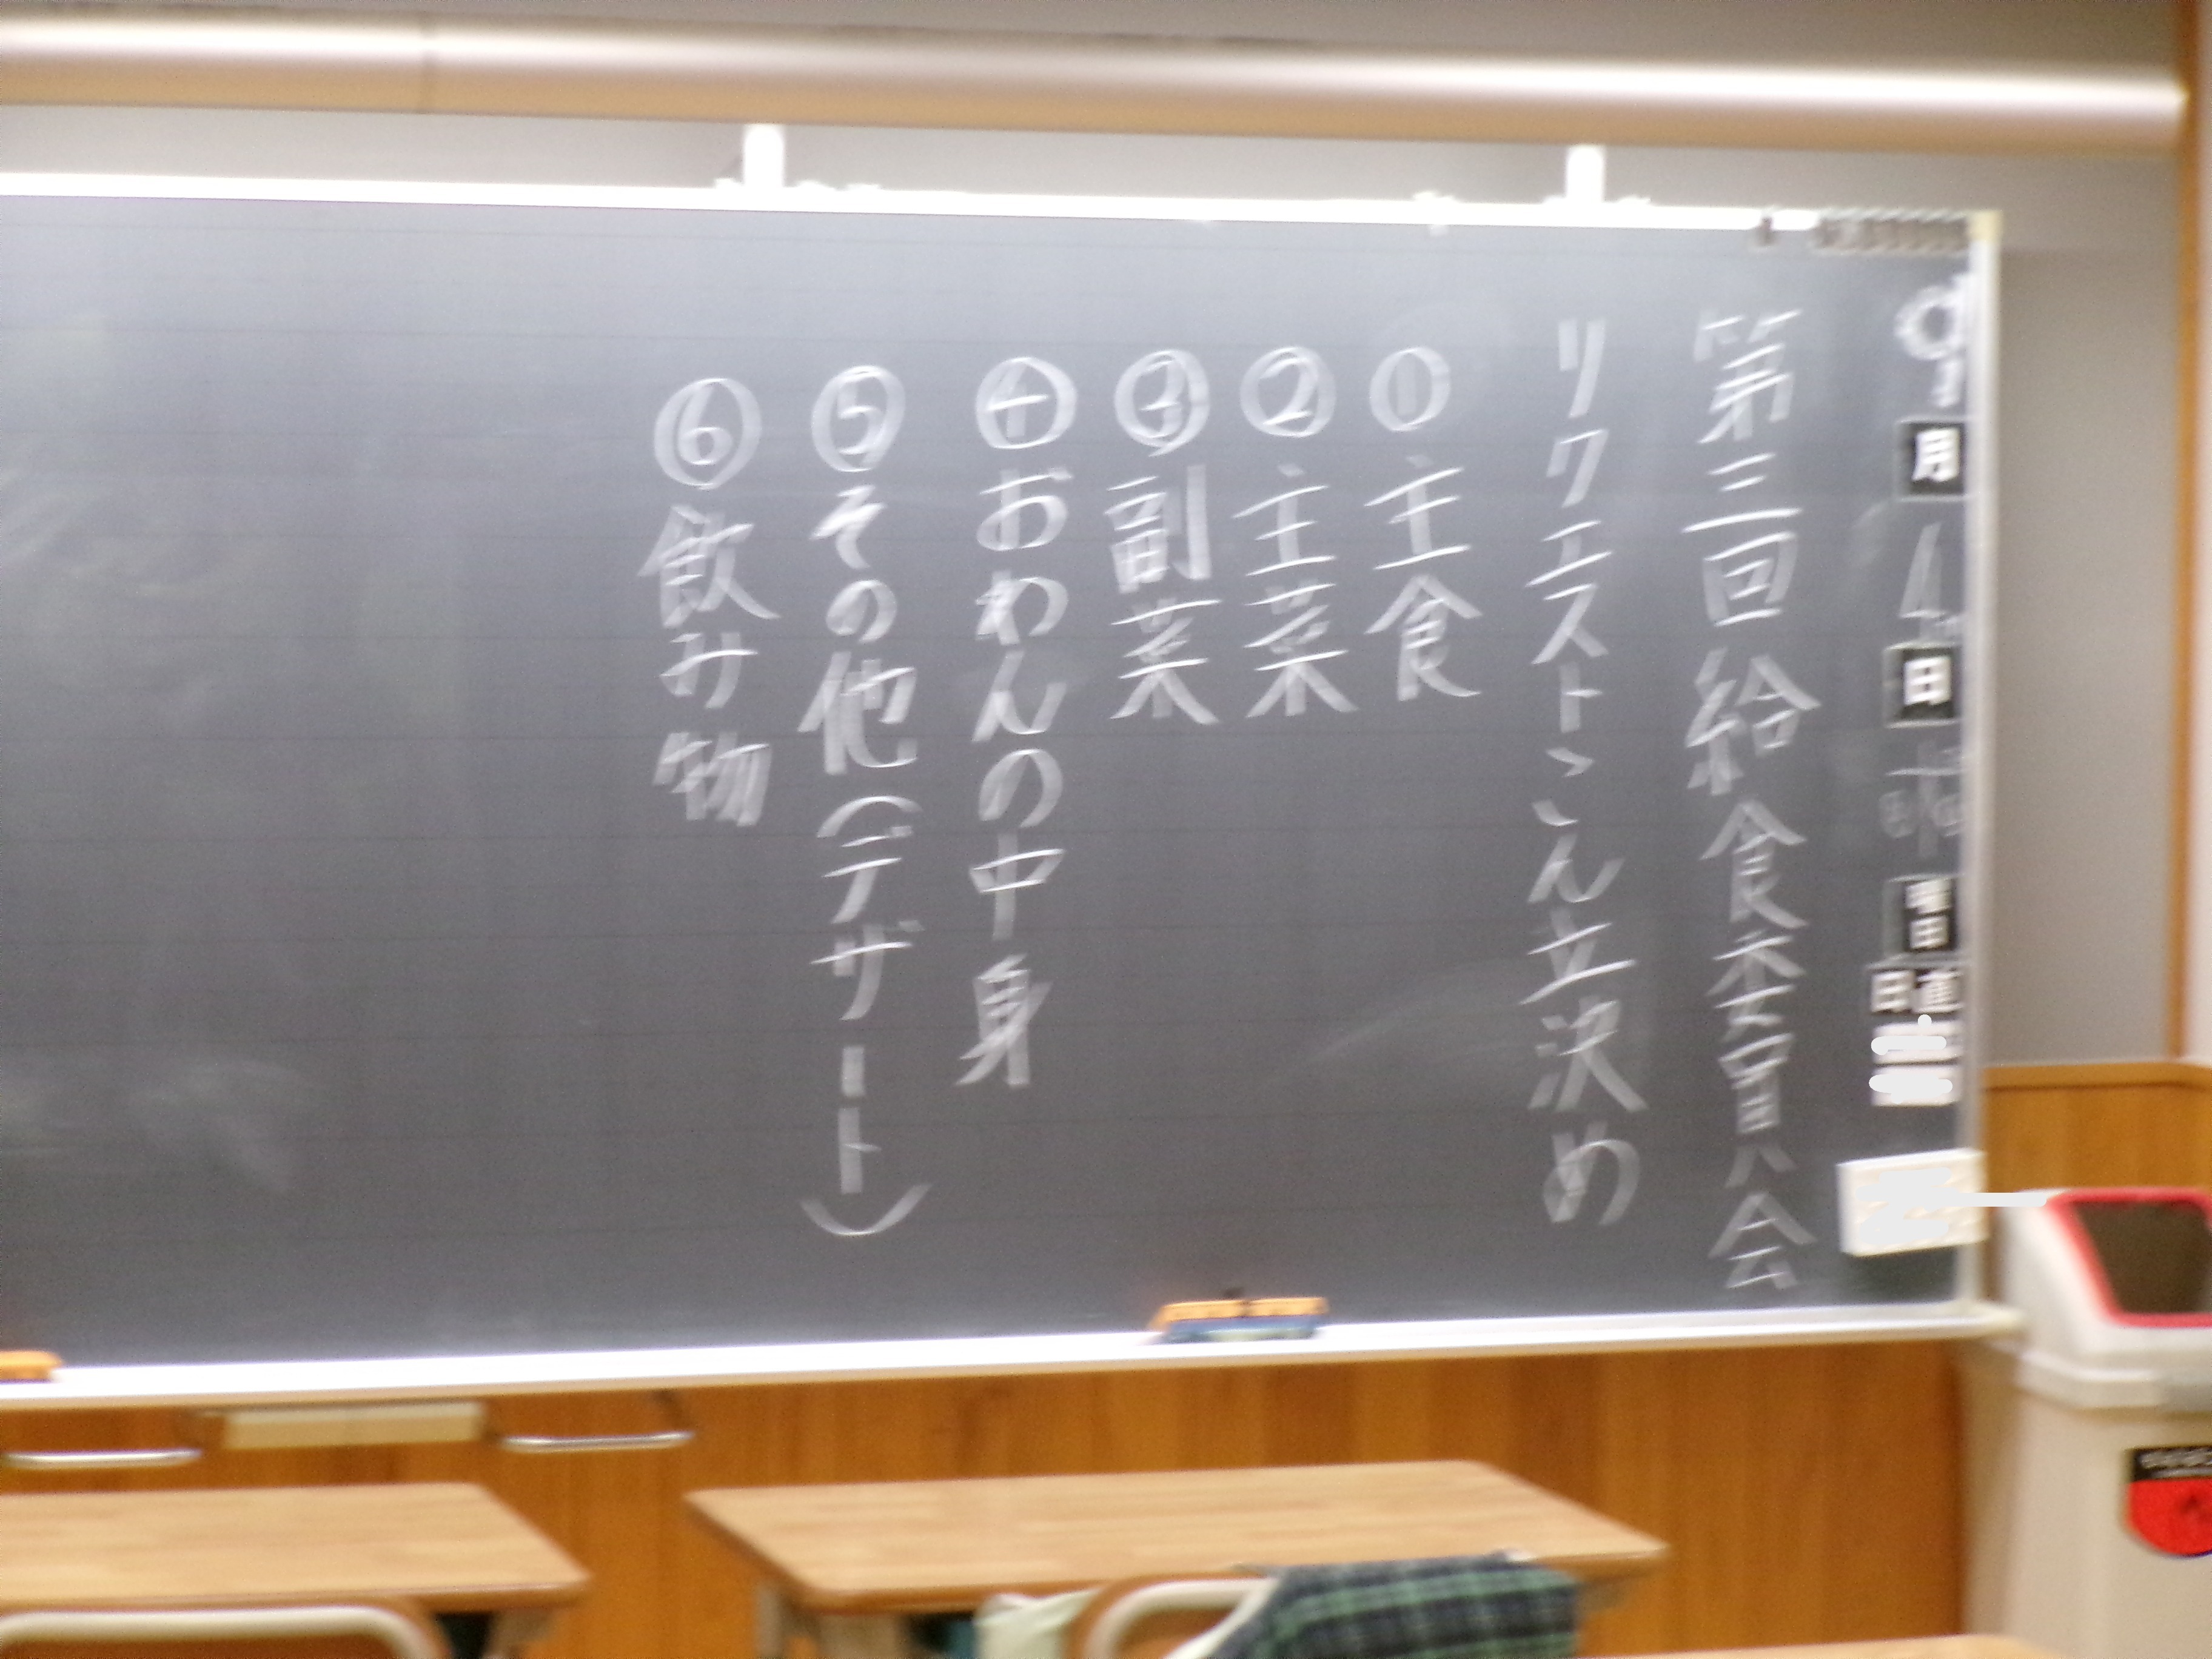 9月
日
曜日
日直
第三回給食委員会
リクエストこん立決め
①主食
②主菜
③副菜
④おわんの中身
⑤その他(デザート)
⑥飲み物